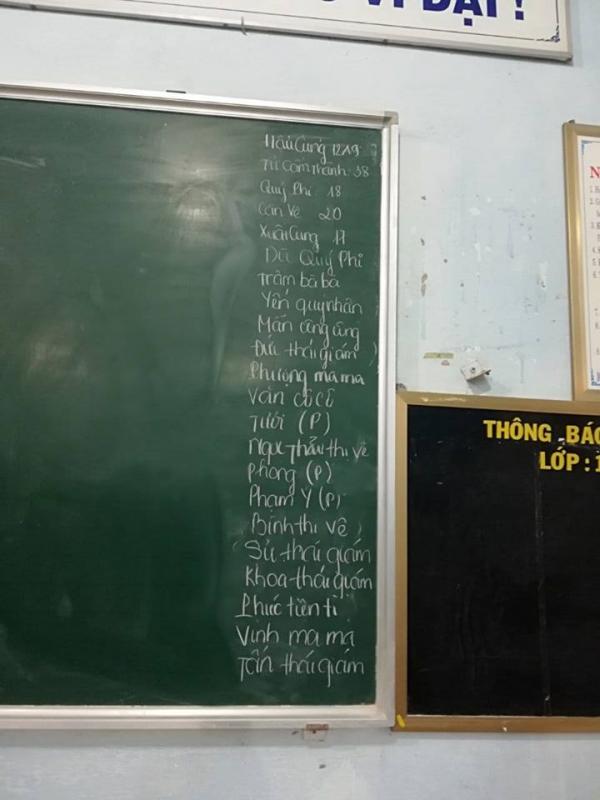 VÌ ĐẠI !
Hậu Cung 12A9
Tử Cấm Thành 38
Quý Phi 18
Cấn Vệ 20
Xuất Cung 17
Dũ Quý Phi
Trâm bà bà
Yến quý nhân
Mẫn công công
Đức thái giám
Phượng ma ma
Vân cô cô
Tưới (P)
Ngọc Thẩu thị vệ
Phong (P)
Phạm Ý (P)
Bình thị vệ
Sử thái giám
Khoa thái giám
Phúc tiên tỉ
Vinh ma ma
Tấn thái giám
THÔNG BÁO
LỚP : 1
N